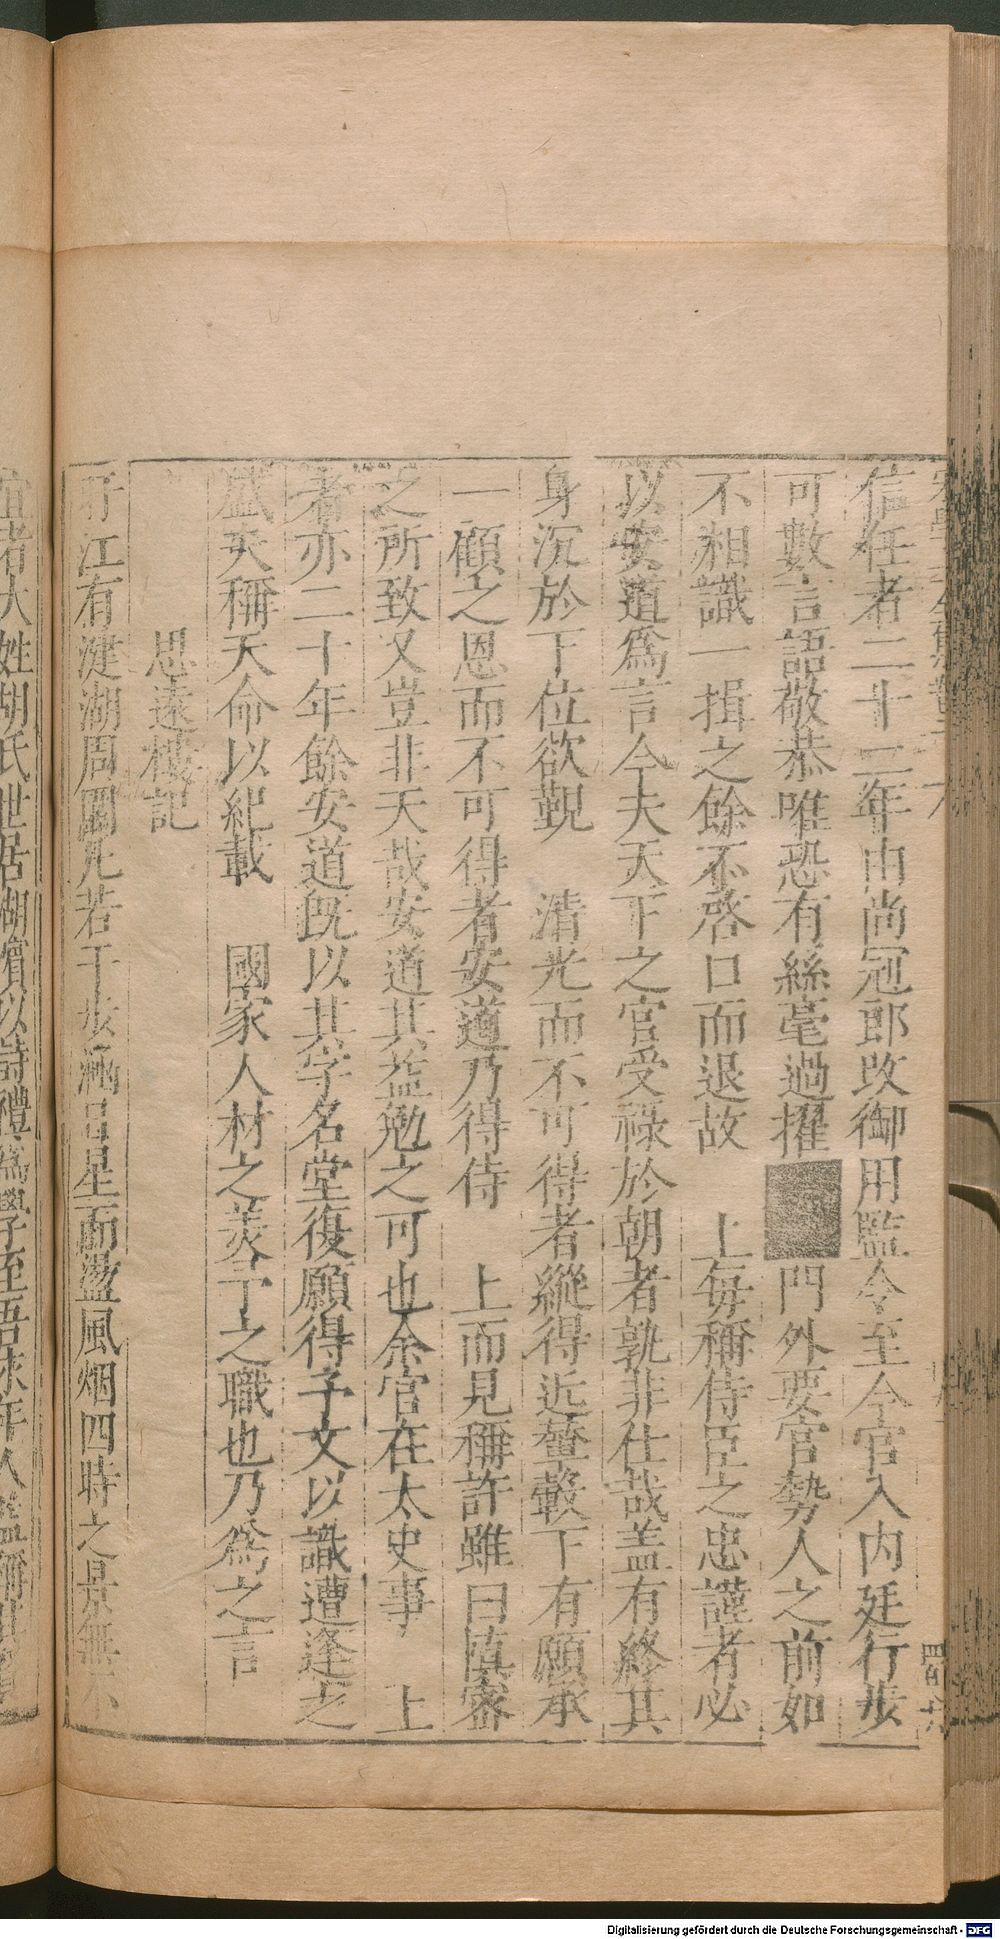 信任者二十二年由尚冠郎改御用監令至今官入内廷行步
可數言語敬恭唯恐有絲毫過擢門外要官勢人之前如
不相識一揖之餘不啓口而退故　上每稱侍臣之忠謹者必
以安道爲言今夫天下之官受祿於朝者孰非仕哉盖有終其
身沉於下位欲覲　清光而不可得者縱得近輦轂下有願承
一顧之恩而不可得者安道乃得侍　上而見稱許雖曰慎審
之所致又豈非天哉安道其益勉之可也余官在太史事　上
者亦二十年餘安道旣以其字名堂復願得予文以識遭逢之
盛夫稱天命以紀載　國家人材之羙予之職也乃爲之言
思遠樓記
盱江有湖周圍凡若干步涵星而盪風烟四時之景無不
宜者大姓胡氏世居湖濱以詩禮爲學至吾
Digitalisierung gefördert durch die Deutsche Forschungsgemeinschaft - DFG